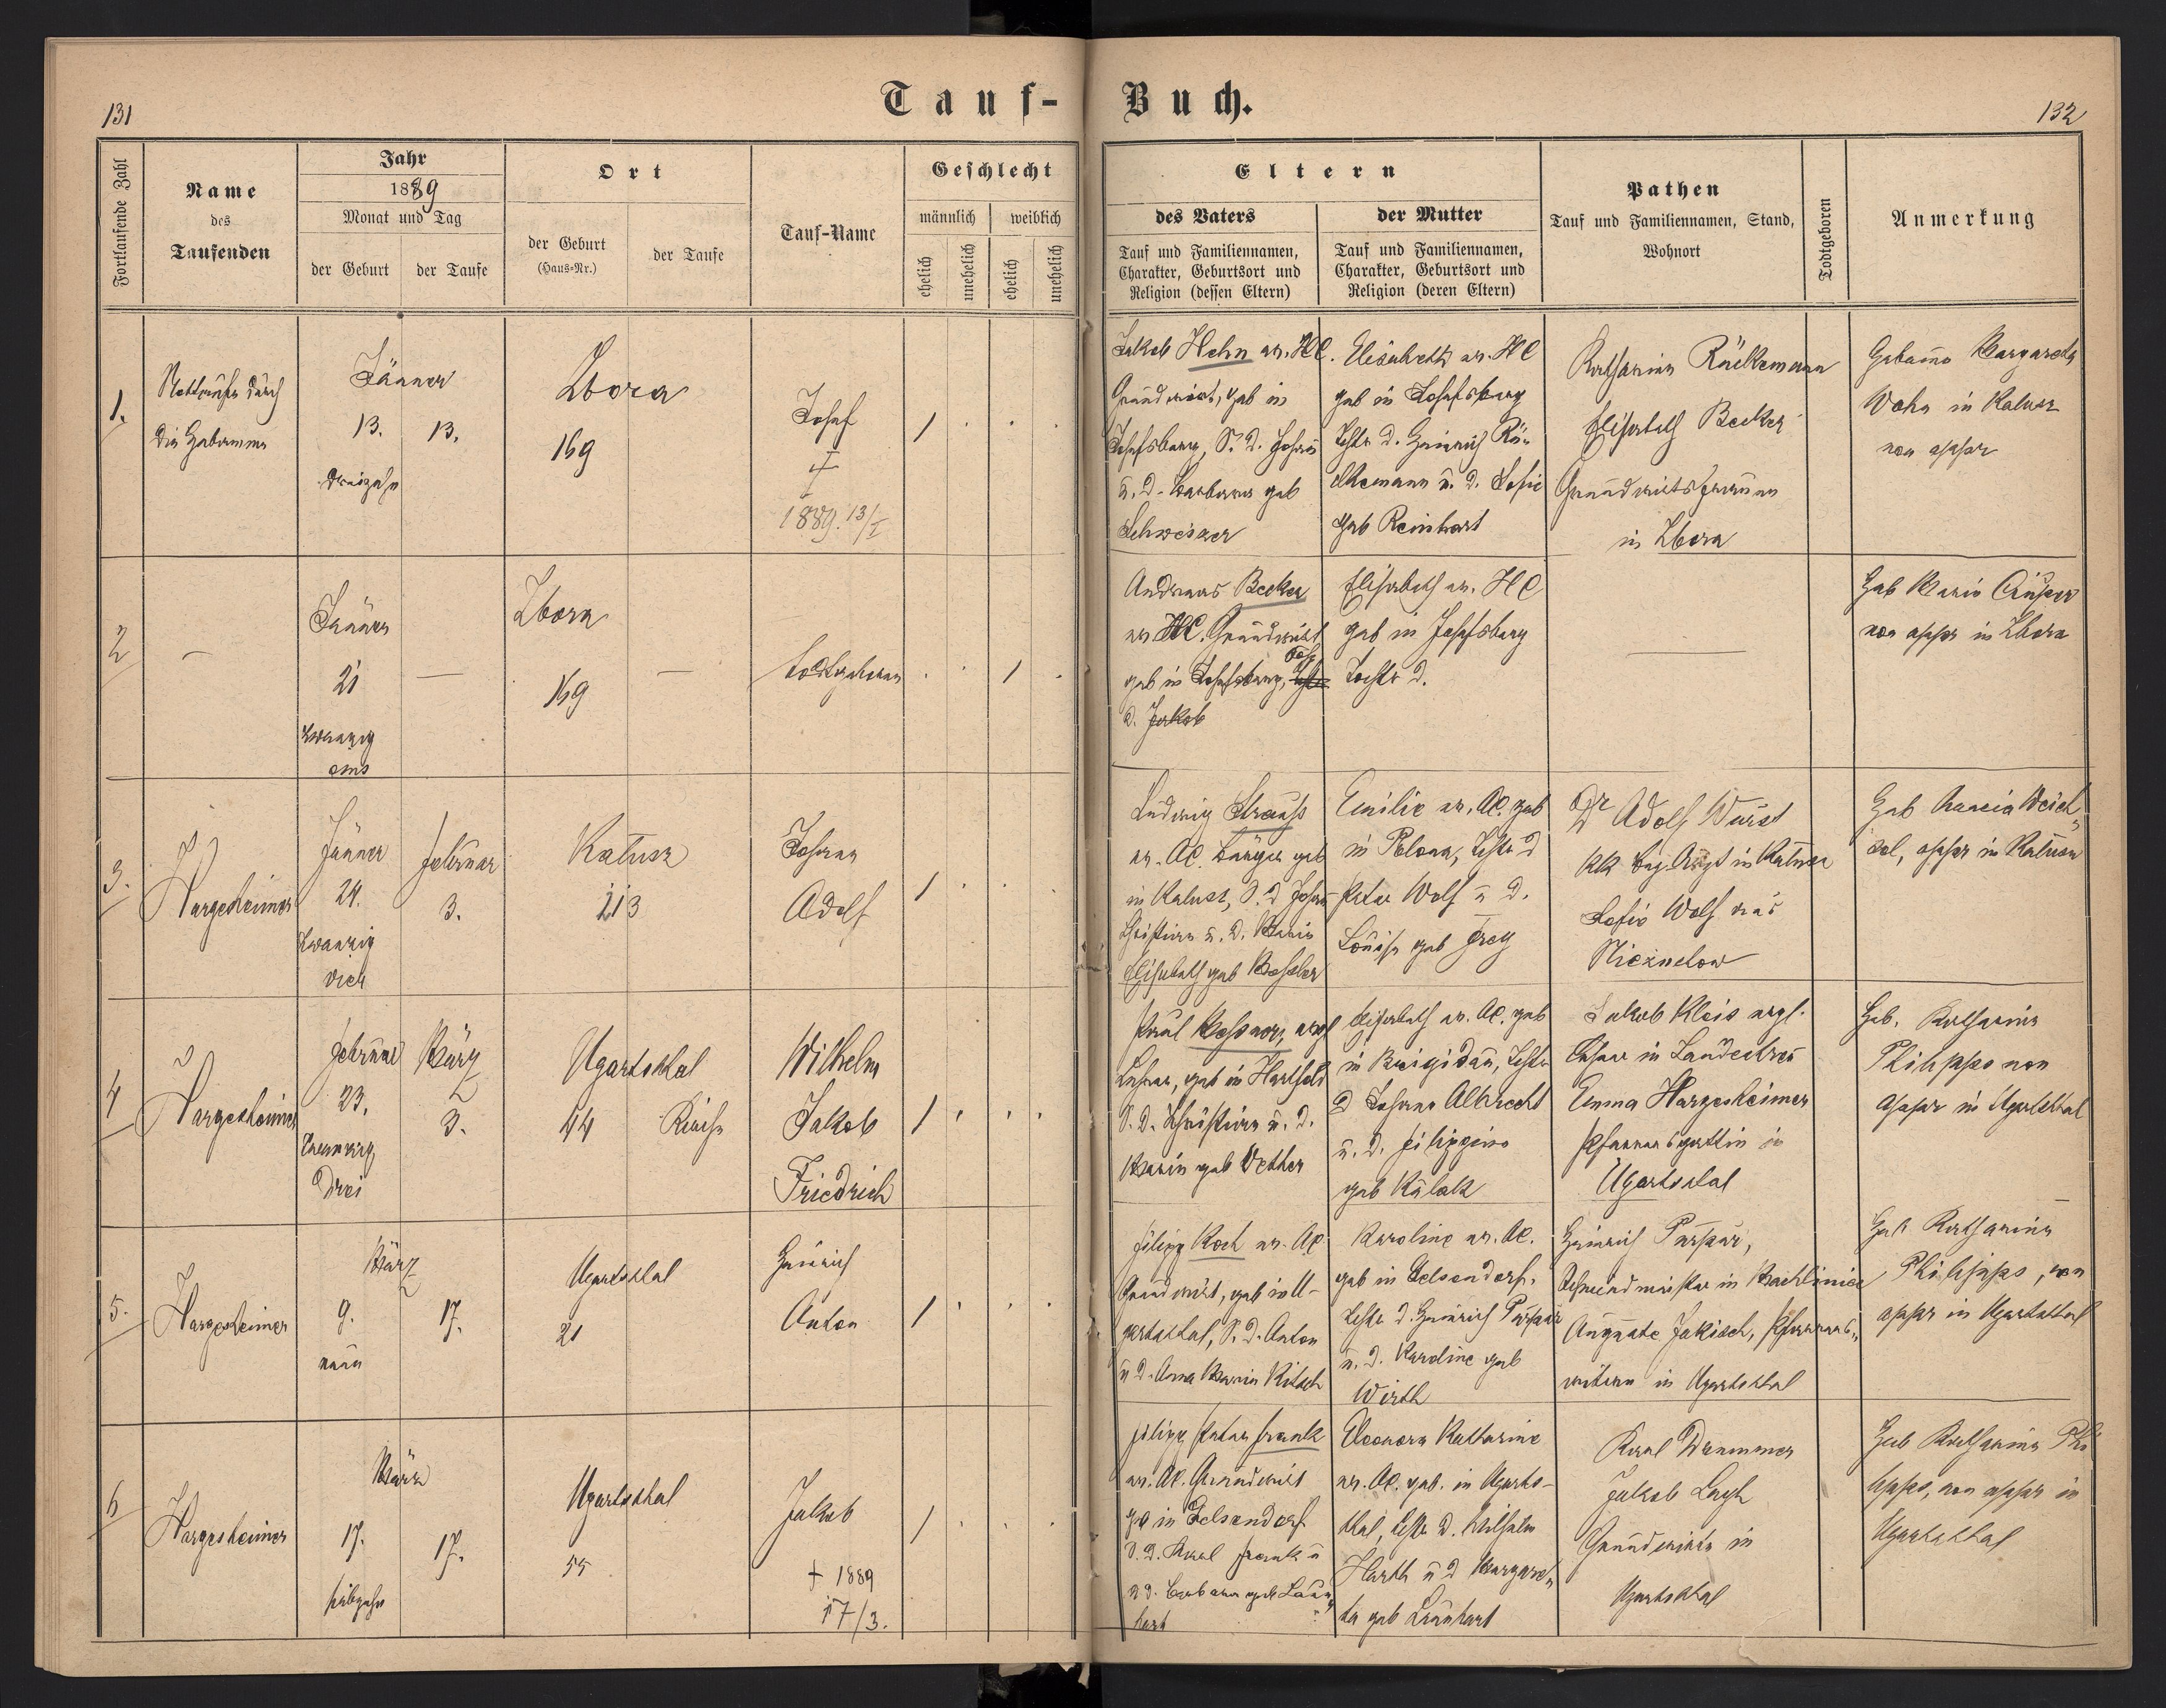 131
Tauf-Buch.
132
Fortlaufende Zahl
Name
des
Taufenden
Jahr
1889
Monat und Tag
der Geburt
der Taufe
Ort
der Geburt
(Haus-Nr.)
der Taufe
Tauf-Name
Geschlecht
männlich
weiblich
ehelich
unehelich
ehelich
unehelich
Eltern
des Vaters
Tauf und Familiennamen,
Charakter, Geburtsort und
Religion (dessen Eltern)
der Mutter
Tauf und Familiennamen,
Charakter, Geburtsort und
Religion (deren Eltern)
Pathen
Tauf und Familiennamen, Stand,
Wohnort
Todtgeboren
Anmerkung
1.
Nottaufe durch
die Hebamme
Jänner
13.
13.
dreizehn
Zbora
169
Josef
†
1889. 13/I
1
Jakob Hehn ev. HC.
Grundwirt, geb in
Josefsberg, S. d. Johann
u. d. Barbara geb
Schweizer
Elisabeth ev. HC
geb in Josefsberg
Tochter d. Heinrich Rü-
ckemann u. d. Sofie
geb Reinhart
Katharina Rückemann
Elisabeth Becker
Grundwirtsfrauen
in Zbora
Hebamme Margareta
in Kalusz
non appr
2
—
Jänner
21
—
zwanzig
eins
Zbora
169
—
todtgeboren
1
Andreas Becker
ev HC. Grundwirt
geb in Josefsberg,
d. Jakob
Elisabeth ev. HC
geb in Josefsberg
Tochter d.
—
Heb Marie
non appr in Zbora
3.
Hargesheimer
Jänner
24.
zwanzig
vier
Februar
3.
Kalusz
213
Johann
Adolf
1
Ludwig Strauss
ev. AC. Bürger geb
in Kalusz, S. d Johann
Christian u. d. Marie
Elisabeth geb
Emilie ev. AC. geb
in Tochter d
Peter Wolf u d.
Louise geb Frey
Dr Adolf Wurst
kk Bez. Arzt in Kalusz
Sofie Wolf aus
Heb
appr in Kalusz
4
Hargesheimer
Februar
23.
zwanzig
drei
März
3.
Ugartsthal
44
Kirche
Wilhelm
Jakob
Friedrich
1
Paul evgl
Lehrer, geb in Hartfeld
S. d. Christian u. d.
Marie geb Vetter
Elisabeth ev. AC. geb
in Brigidau, Tochter
d Johann Albrecht
u. d. Filippine
geb
Jakob Kleis evgl.
Lehrer in Landestreu
Emma Hargesheimer
Pfarrersgattin in
Ugartsthal
Heb. Katharina
Philipps non
appr in Ugartsthal
5.
Hargesheimer
März
9.
neun
17.
Ugartsthal
21
Heinrich
Anton
1
Filipp Koch ev. AC
Grundwirt, geb in U-
gartsthal, S. d. Anton
u d. Anna Maria Kitsch
Karoline ev. AC.
geb in Gelsendorf,
Tochter d. Heinrich
u. d. Karoline geb
Wirth
Heinrich
in
Auguste Jakisch, Pfarrers-
witwe in Ugartsthal
Heb Katharina
Philipps, non
appr in Ugartsthal
6
Hargesheimer
März
17.
siebzehn
17.
Ugartsthal
55
Jakob
† 1889
17/3.
1
Filipp Peter Frank
ev. AC. Grundwirt
geb in Gelsendorf
S. d. Karl Frank u
d. Barbara geb
Eleonora Katharine
ev. AC. geb. in Ugarts-
thal, Tochter d. Wilhelm
Harth u d Margare-
ta geb
Karl
Jakob
Grundwirte in
Ugartsthal
Heb Katharina Phi
lipps, non appr in
Ugartsthal